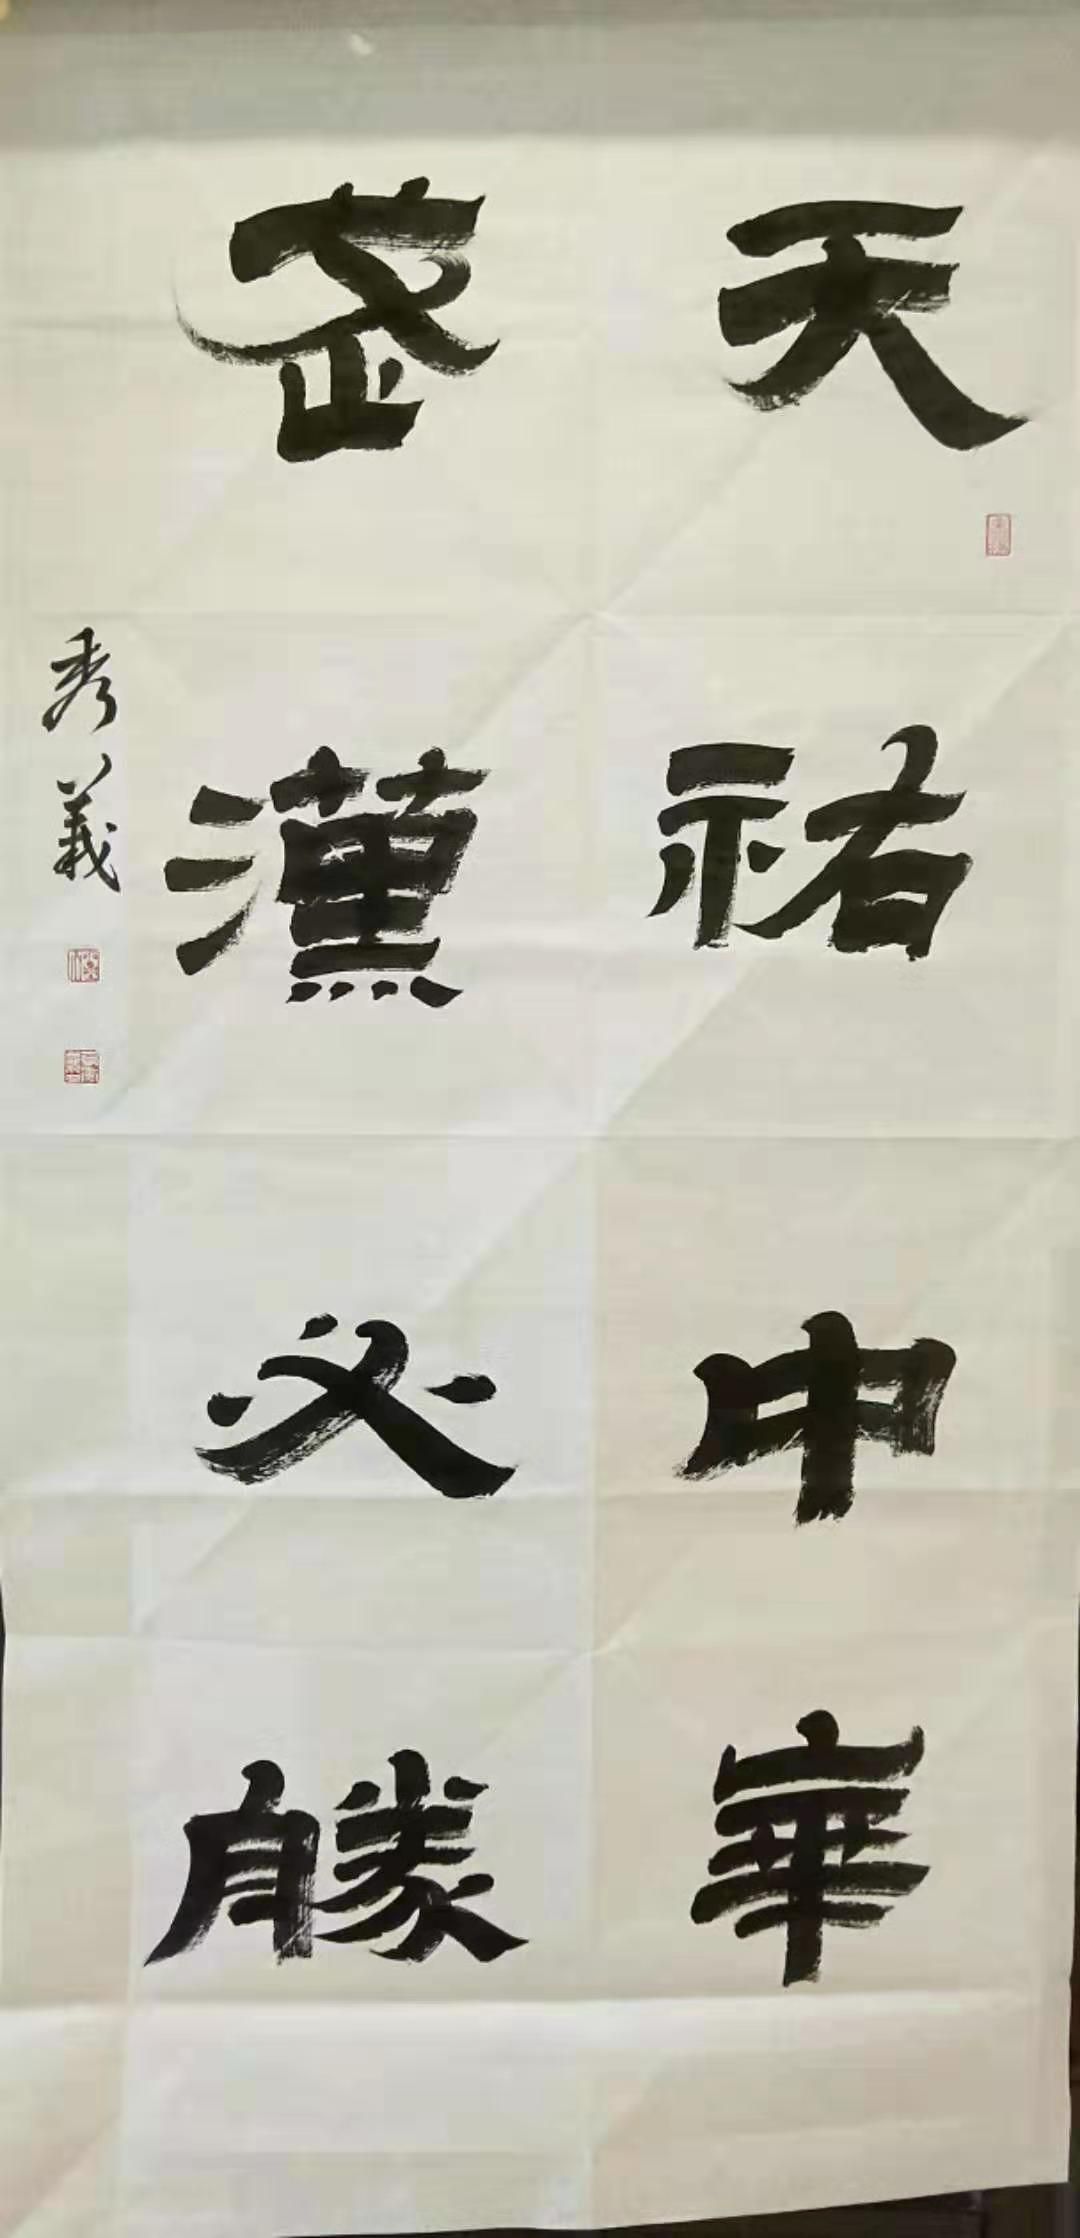 天祐中華
武漢必勝
秀義